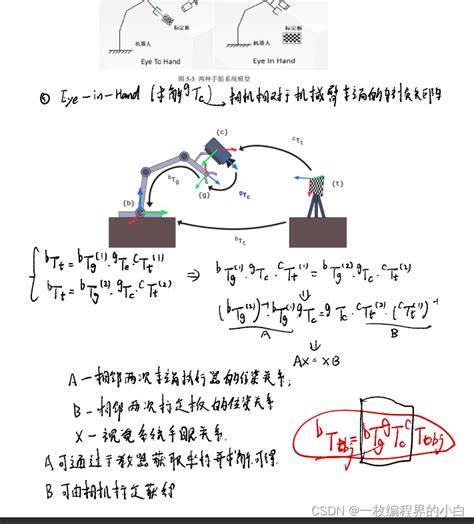 标定板
机器人
机器人
标定板
Eye To Hand
Eye In Hand
图 5-3 两种手眼系统模型
① Eye-in-Hand (求解gTc) 相机相对于机械臂末端的
{c}
cTt
bTg
{g}
gTc
{b}
{t}
bTt
bTt = bTg(1)·gTc·cTt(1)
bTt = bTg(2)·gTc·cTt(2)
⇒ bTg(1)·gTc·cTt(1) = bTg(2)·gTc·cTt(2)
(bTg(2))-1·bTg(1)·gTc = gTc·cTt(2)·(cTt(1))-1
A
B
AX = XB
A—相邻两次末端执行器的位姿关系;
B—相邻两次标定板的位姿关系
X—视觉系统手眼关系.
A 可通过示教器获取
B 可由相机标定获得
bTobj = bTg gTc cTobj
CSDN @一枚编程界的小白